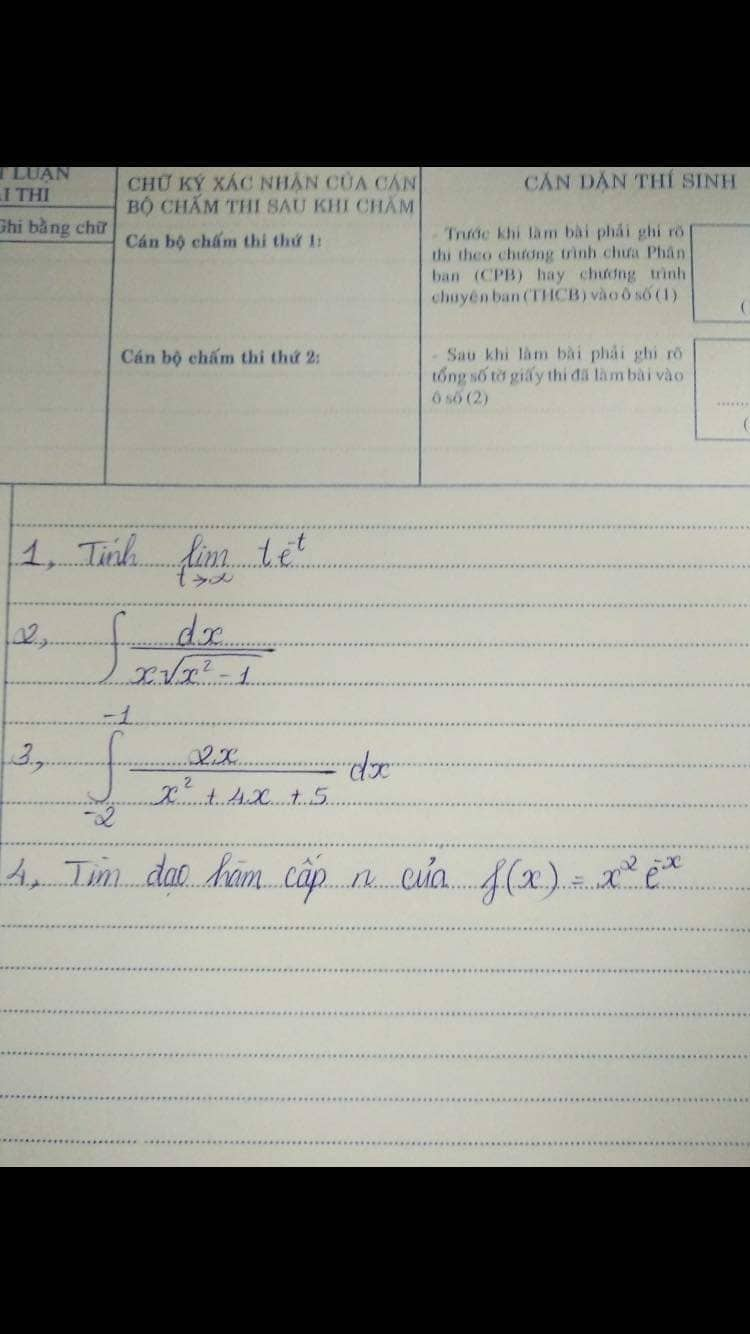 T LUẬN
ÀI THI
Ghi bằng chữ
CHỮ KÝ XÁC NHẬN CỦA CÁN
BỘ CHẤM THI SAU KHI CHẤM
Cán bộ chấm thi thứ 1:
Cán bộ chấm thi thứ 2:
CĂN DẶN THÍ SINH
- Trước khi làm bài phải ghi rõ
thi theo chương trình chưa Phân
ban (CPB) hay chương trình
chuyên ban (THCB) vào ô số (1)
(
- Sau khi làm bài phải ghi rõ
tổng số tờ giấy thi đã làm bài vào
ô số (2)
.......
(
1, Tính lim t→∞ te^-t
2, ∫ dx / x√x² - 1
3, ∫ -2 -1 2x / x² + 4x + 5 dx
4, Tìm đạo hàm cấp n của f(x) = x² e^-x